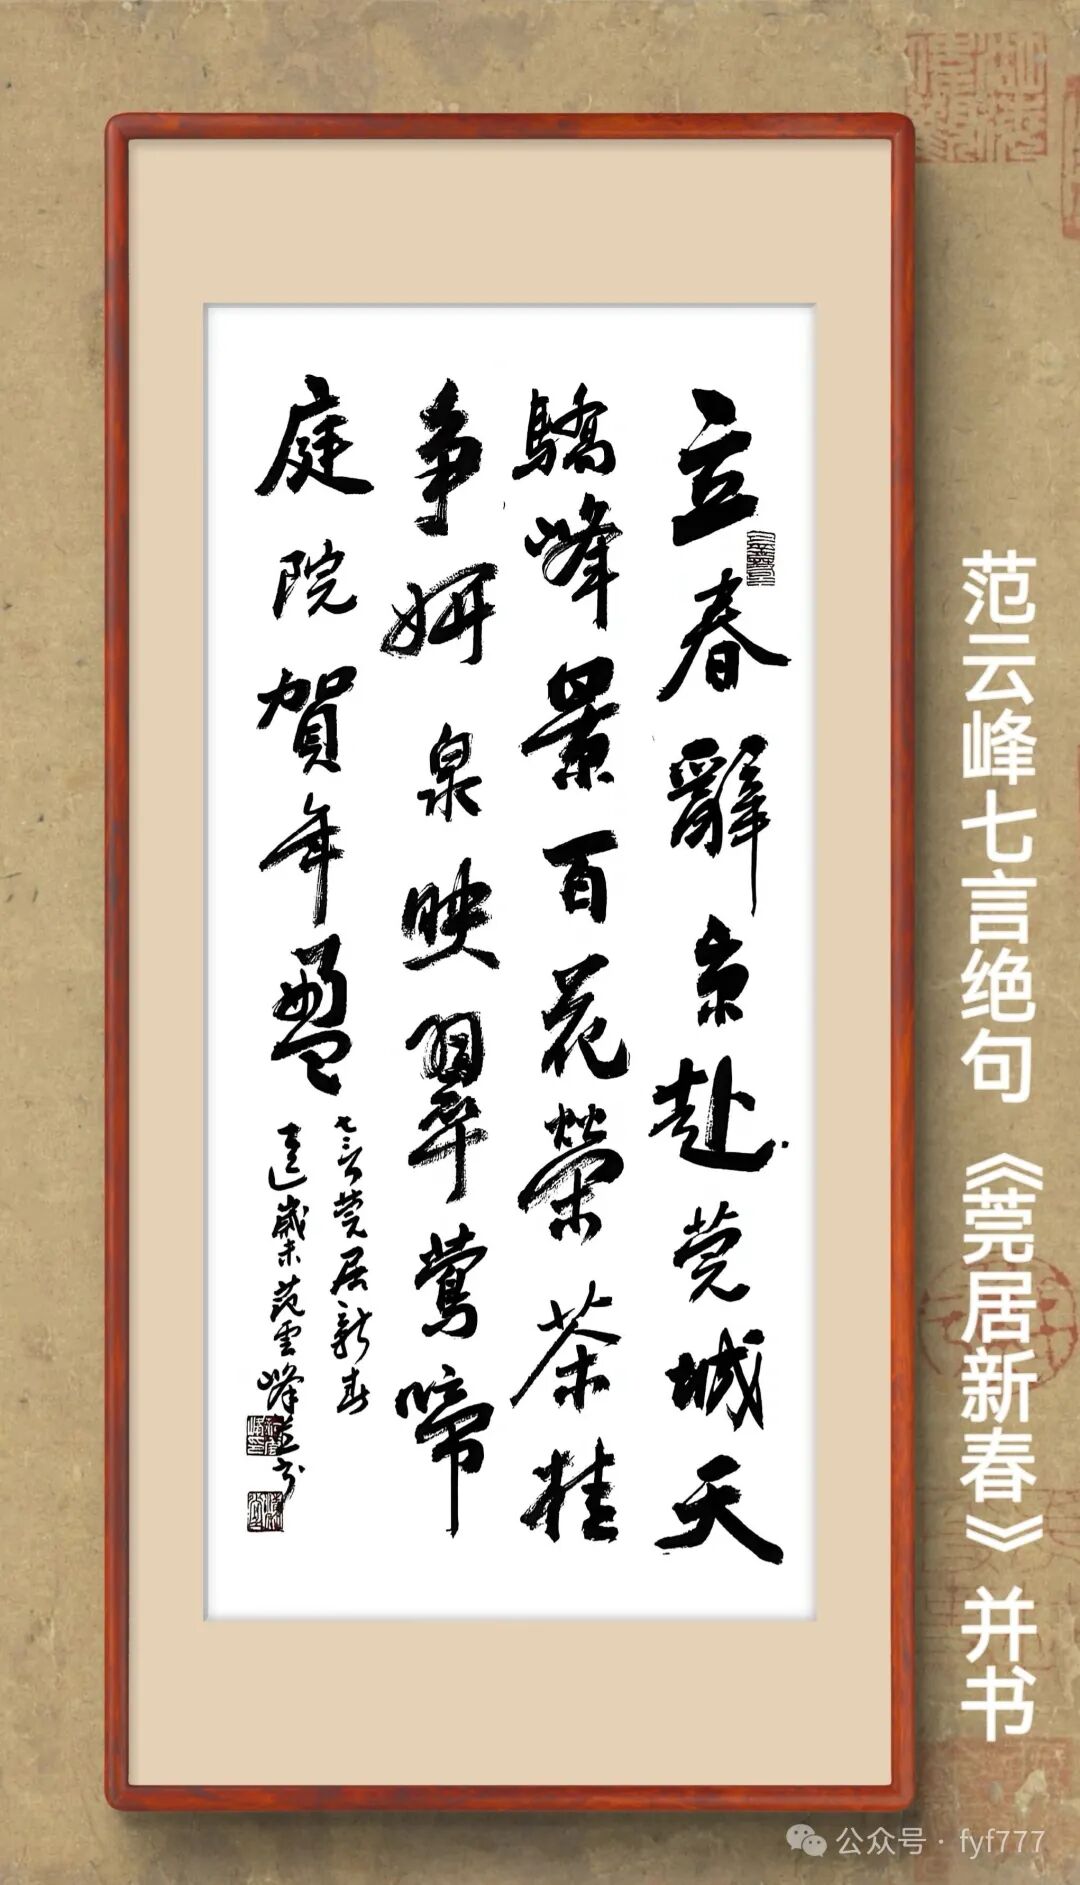 范云峰七言绝句《莞居新春》并书
立春辭京赴莞城天
驕峰景百花榮茶桂
争妍泉映翠鶯啼
庭院賀年盈
七言莞居新春
歲末范雲峰並書
公众号 · fyf777